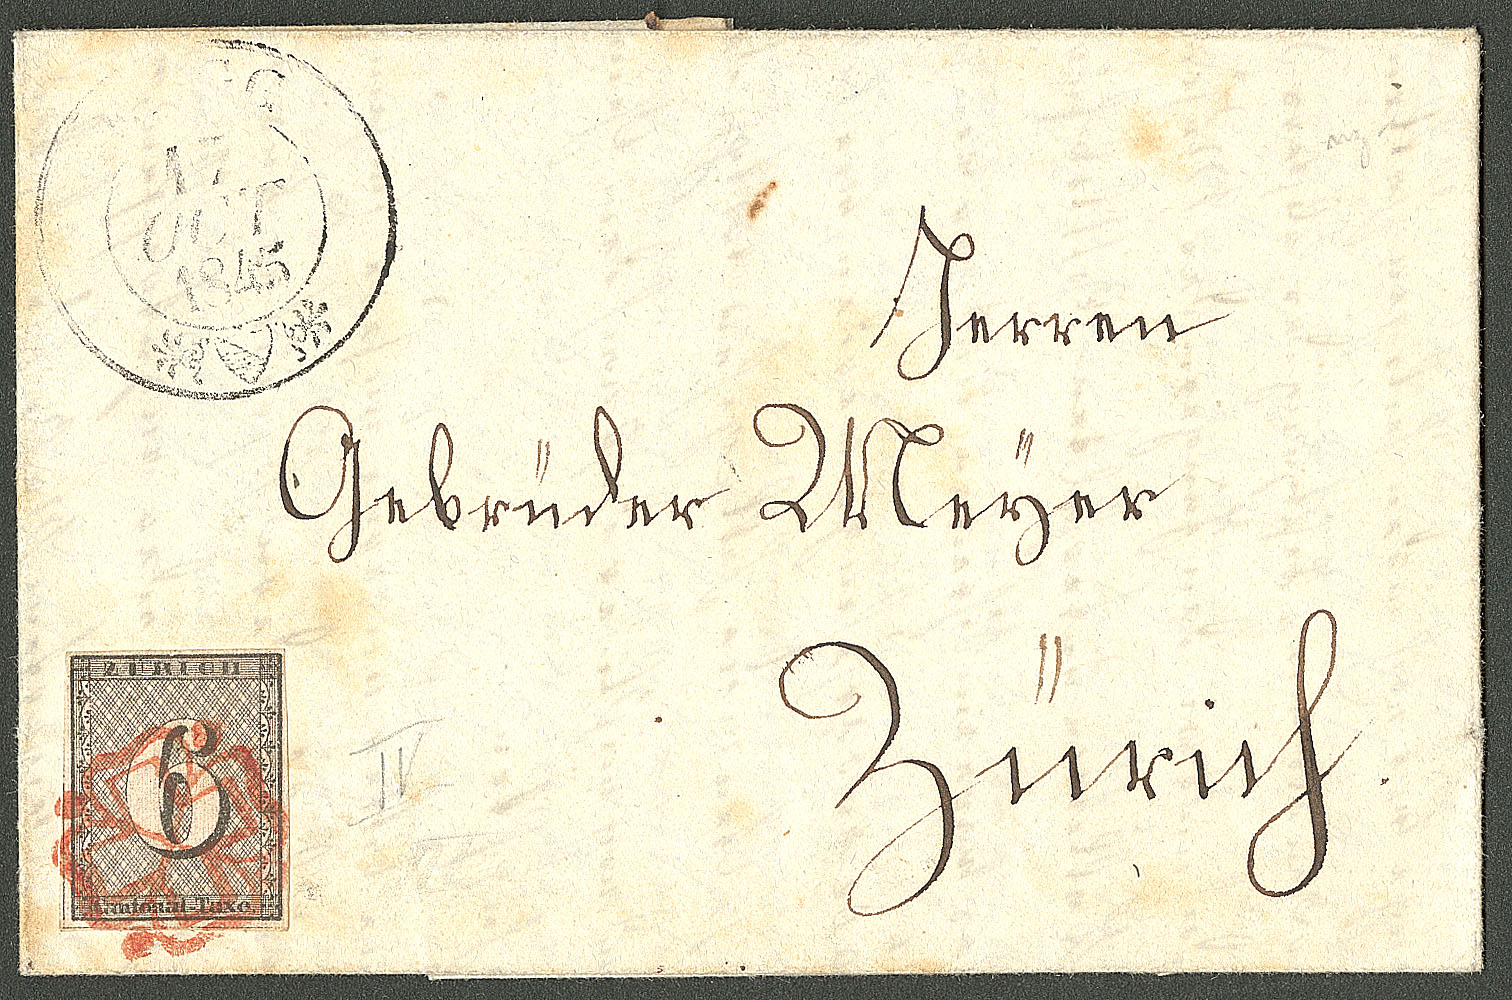 17
OCT
1845
Herren
Gebrüder Meÿer
Zürich.
ZÜRICH
6
Cantonal-Taxe.
IV